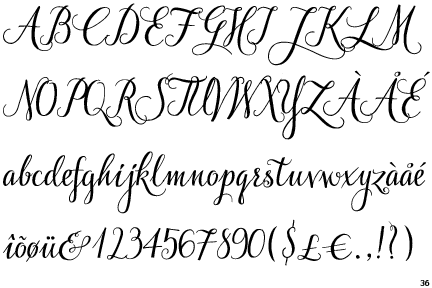 ABCDEFGHIJKLM
NOPQRSTUVWXYZÀÅÉ
abcdefghijklmnopqrstuvwxyzàåé
îõøü&1234567890($£€.,!?)
36